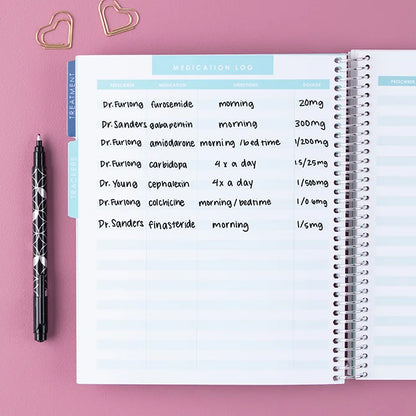 MEDICATION LOG
PRESCRIBER MEDICATION DIRECTIONS DOSAGE
PRESCRIBER
TREATMENT
TRACKERS
Dr. Furlong furosemide morning 20mg
Dr. Sanders gabapentin morning 300mg
Dr. Furlong amiodarone morning / bedtime 1/200mg
Dr. Furlong carbidopa 4 x a day 1.5/25mg
Dr. Young cephalexin 4x a day 1/500mg
Dr. Furlong colchicine morning / bedtime 1/0.6mg
Dr. Sanders finasteride morning 1/5mg